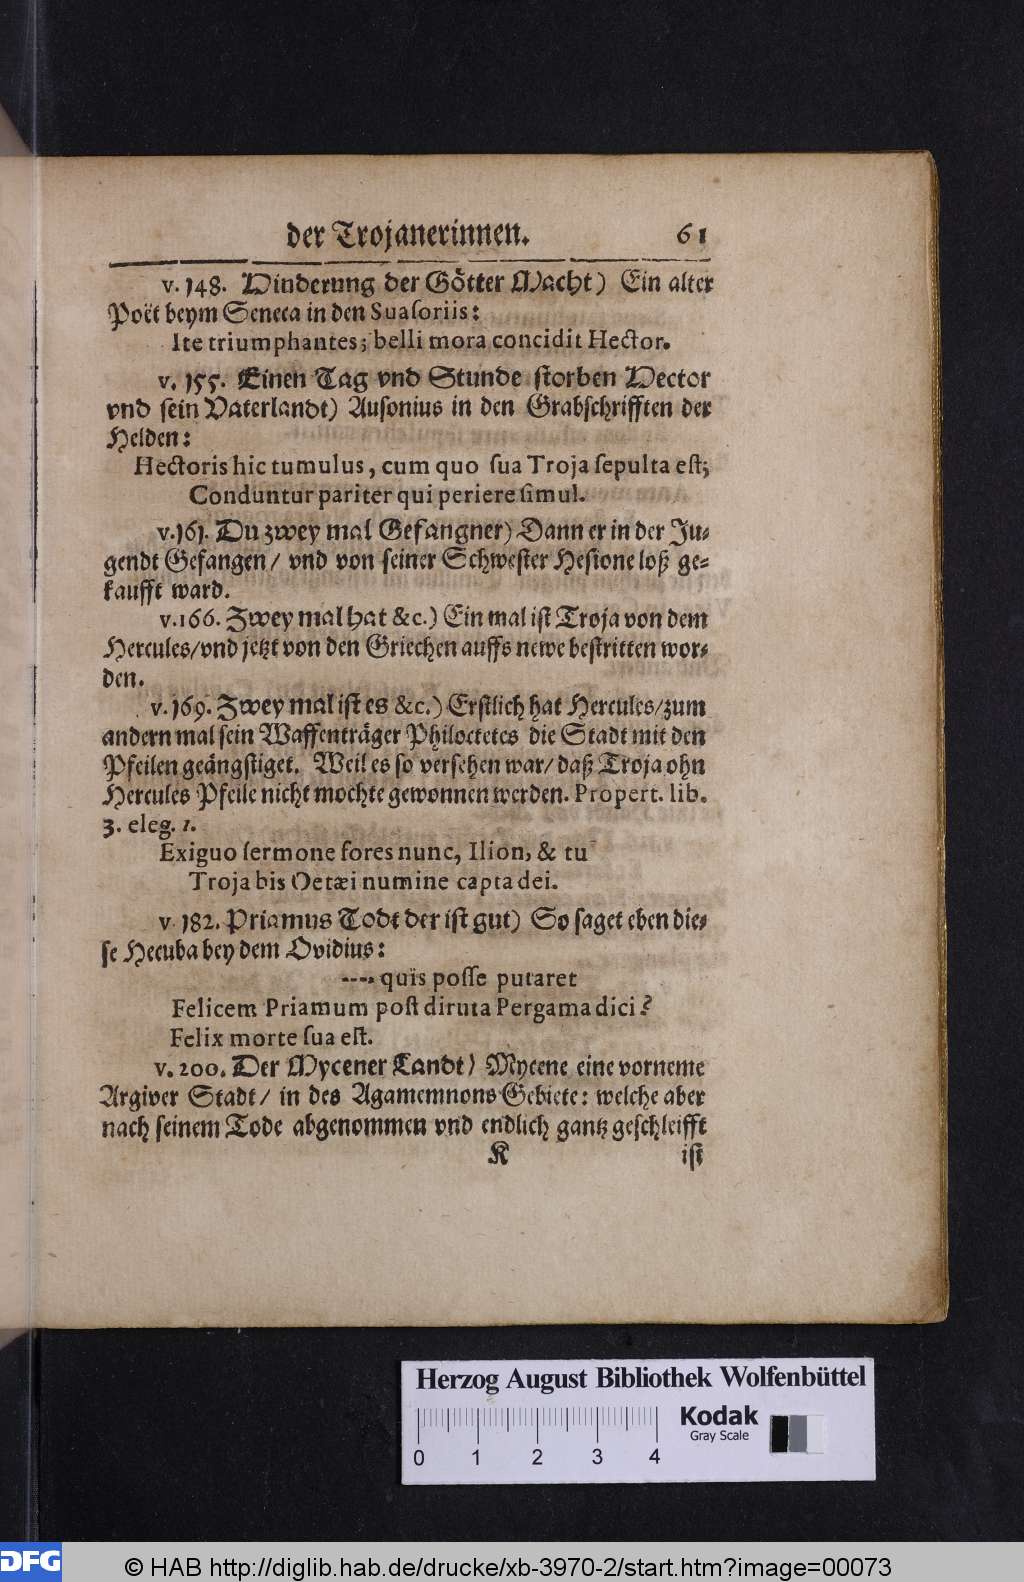 der Trojanerinnen. 61
v. 148. Hinderung der Götter Macht) Ein alter
Poët beym Seneca in den Suaſoriis:
Ite triumphantes; belli mora concidit Hector.
v. 155. Einen Tag vnd Stunde ſtorben Hector
vnd ſein Vaterlandt) Auſonius in den Grabſchrifften der
Helden:
Hectoris hic tumulus, cum quo ſua Troja ſepulta eſt;
Conduntur pariter qui periere ſimul.
v. 161. Du zwey mal Gefangner) Dann er in der Ju⸗
gendt Gefangen / vnd von ſeiner Schweſter Heſione loß ge⸗
kaufft ward.
v. 166. Zwey mal hat &c.) Ein mal iſt Troja von dem
Hercules / vnd jetzt von den Griechen auffs newe beſtritten wor⸗
den.
v. 169. Zwey mal iſt es &c.) Erſtlich hat Hercules / zum
andern mal ſein Waffenträger Philoctetes die Stadt mit den
Pfeilen geängſtiget. Weil es ſo verſehen war / daß Troja ohn
Hercules Pfeile nicht mochte gewonnen werden. Propert. lib.
3. eleg. 1.
Exiguo ſermone fores nunc, Ilion, & tu
Troja bis Oetæi numine capta dei.
v 182. Priamus Todt der iſt gut) So ſaget eben die⸗
ſe Hecuba bey dem Ovidius:
----. quis poſſe putaret
Felicem Priamum poſt diruta Pergama dici?
Felix morte ſua eſt.
v. 200. Der Mycener Landt) Mycene eine vorneme
Argiver Stadt / in des Agamemnons Gebiete: welche aber
nach ſeinem Tode abgenommen vnd endlich gantz geſchleifft
K iſt
Herzog August Bibliothek Wolfenbüttel
Kodak
Gray Scale
0 1 2 3 4
DFG © HAB http://diglib.hab.de/drucke/xb-3970-2/start.htm?image=00073